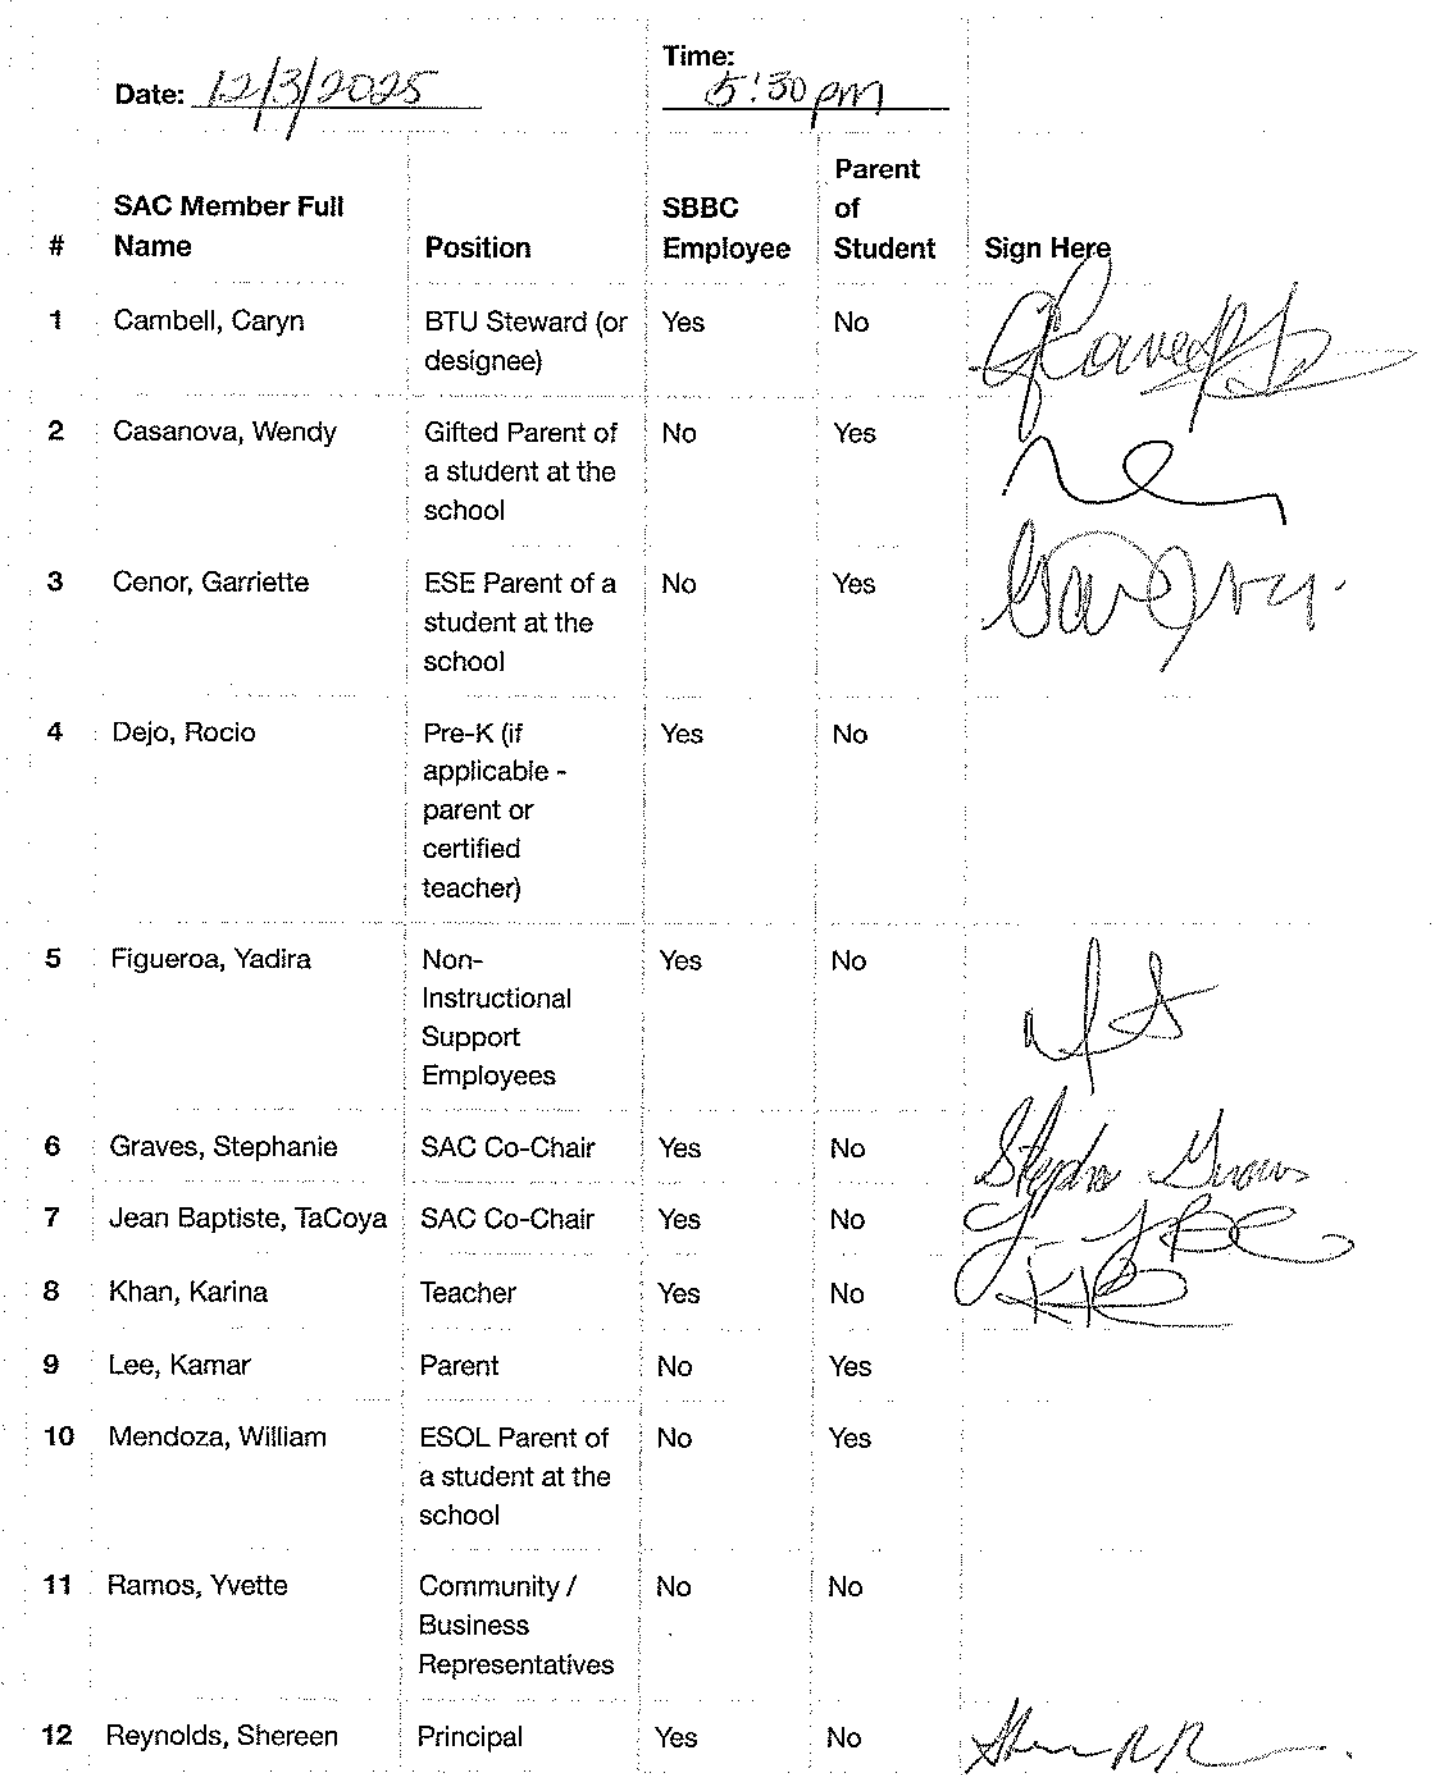 Date: 12/3/2025
Time: 5:30 pm
# SAC Member Full Name Position SBBC Employee Parent of Student Sign Here
1 Cambell, Caryn BTU Steward (or designee) Yes No
2 Casanova, Wendy Gifted Parent of a student at the school No Yes
3 Cenor, Garriette ESE Parent of a student at the school No Yes
4 Dejo, Rocio Pre-K (if applicable - parent or certified teacher) Yes No
5 Figueroa, Yadira Non-Instructional Support Employees Yes No
6 Graves, Stephanie SAC Co-Chair Yes No
7 Jean Baptiste, TaCoya SAC Co-Chair Yes No
8 Khan, Karina Teacher Yes No
9 Lee, Kamar Parent No Yes
10 Mendoza, William ESOL Parent of a student at the school No Yes
11 Ramos, Yvette Community / Business Representatives No No
12 Reynolds, Shereen Principal Yes No